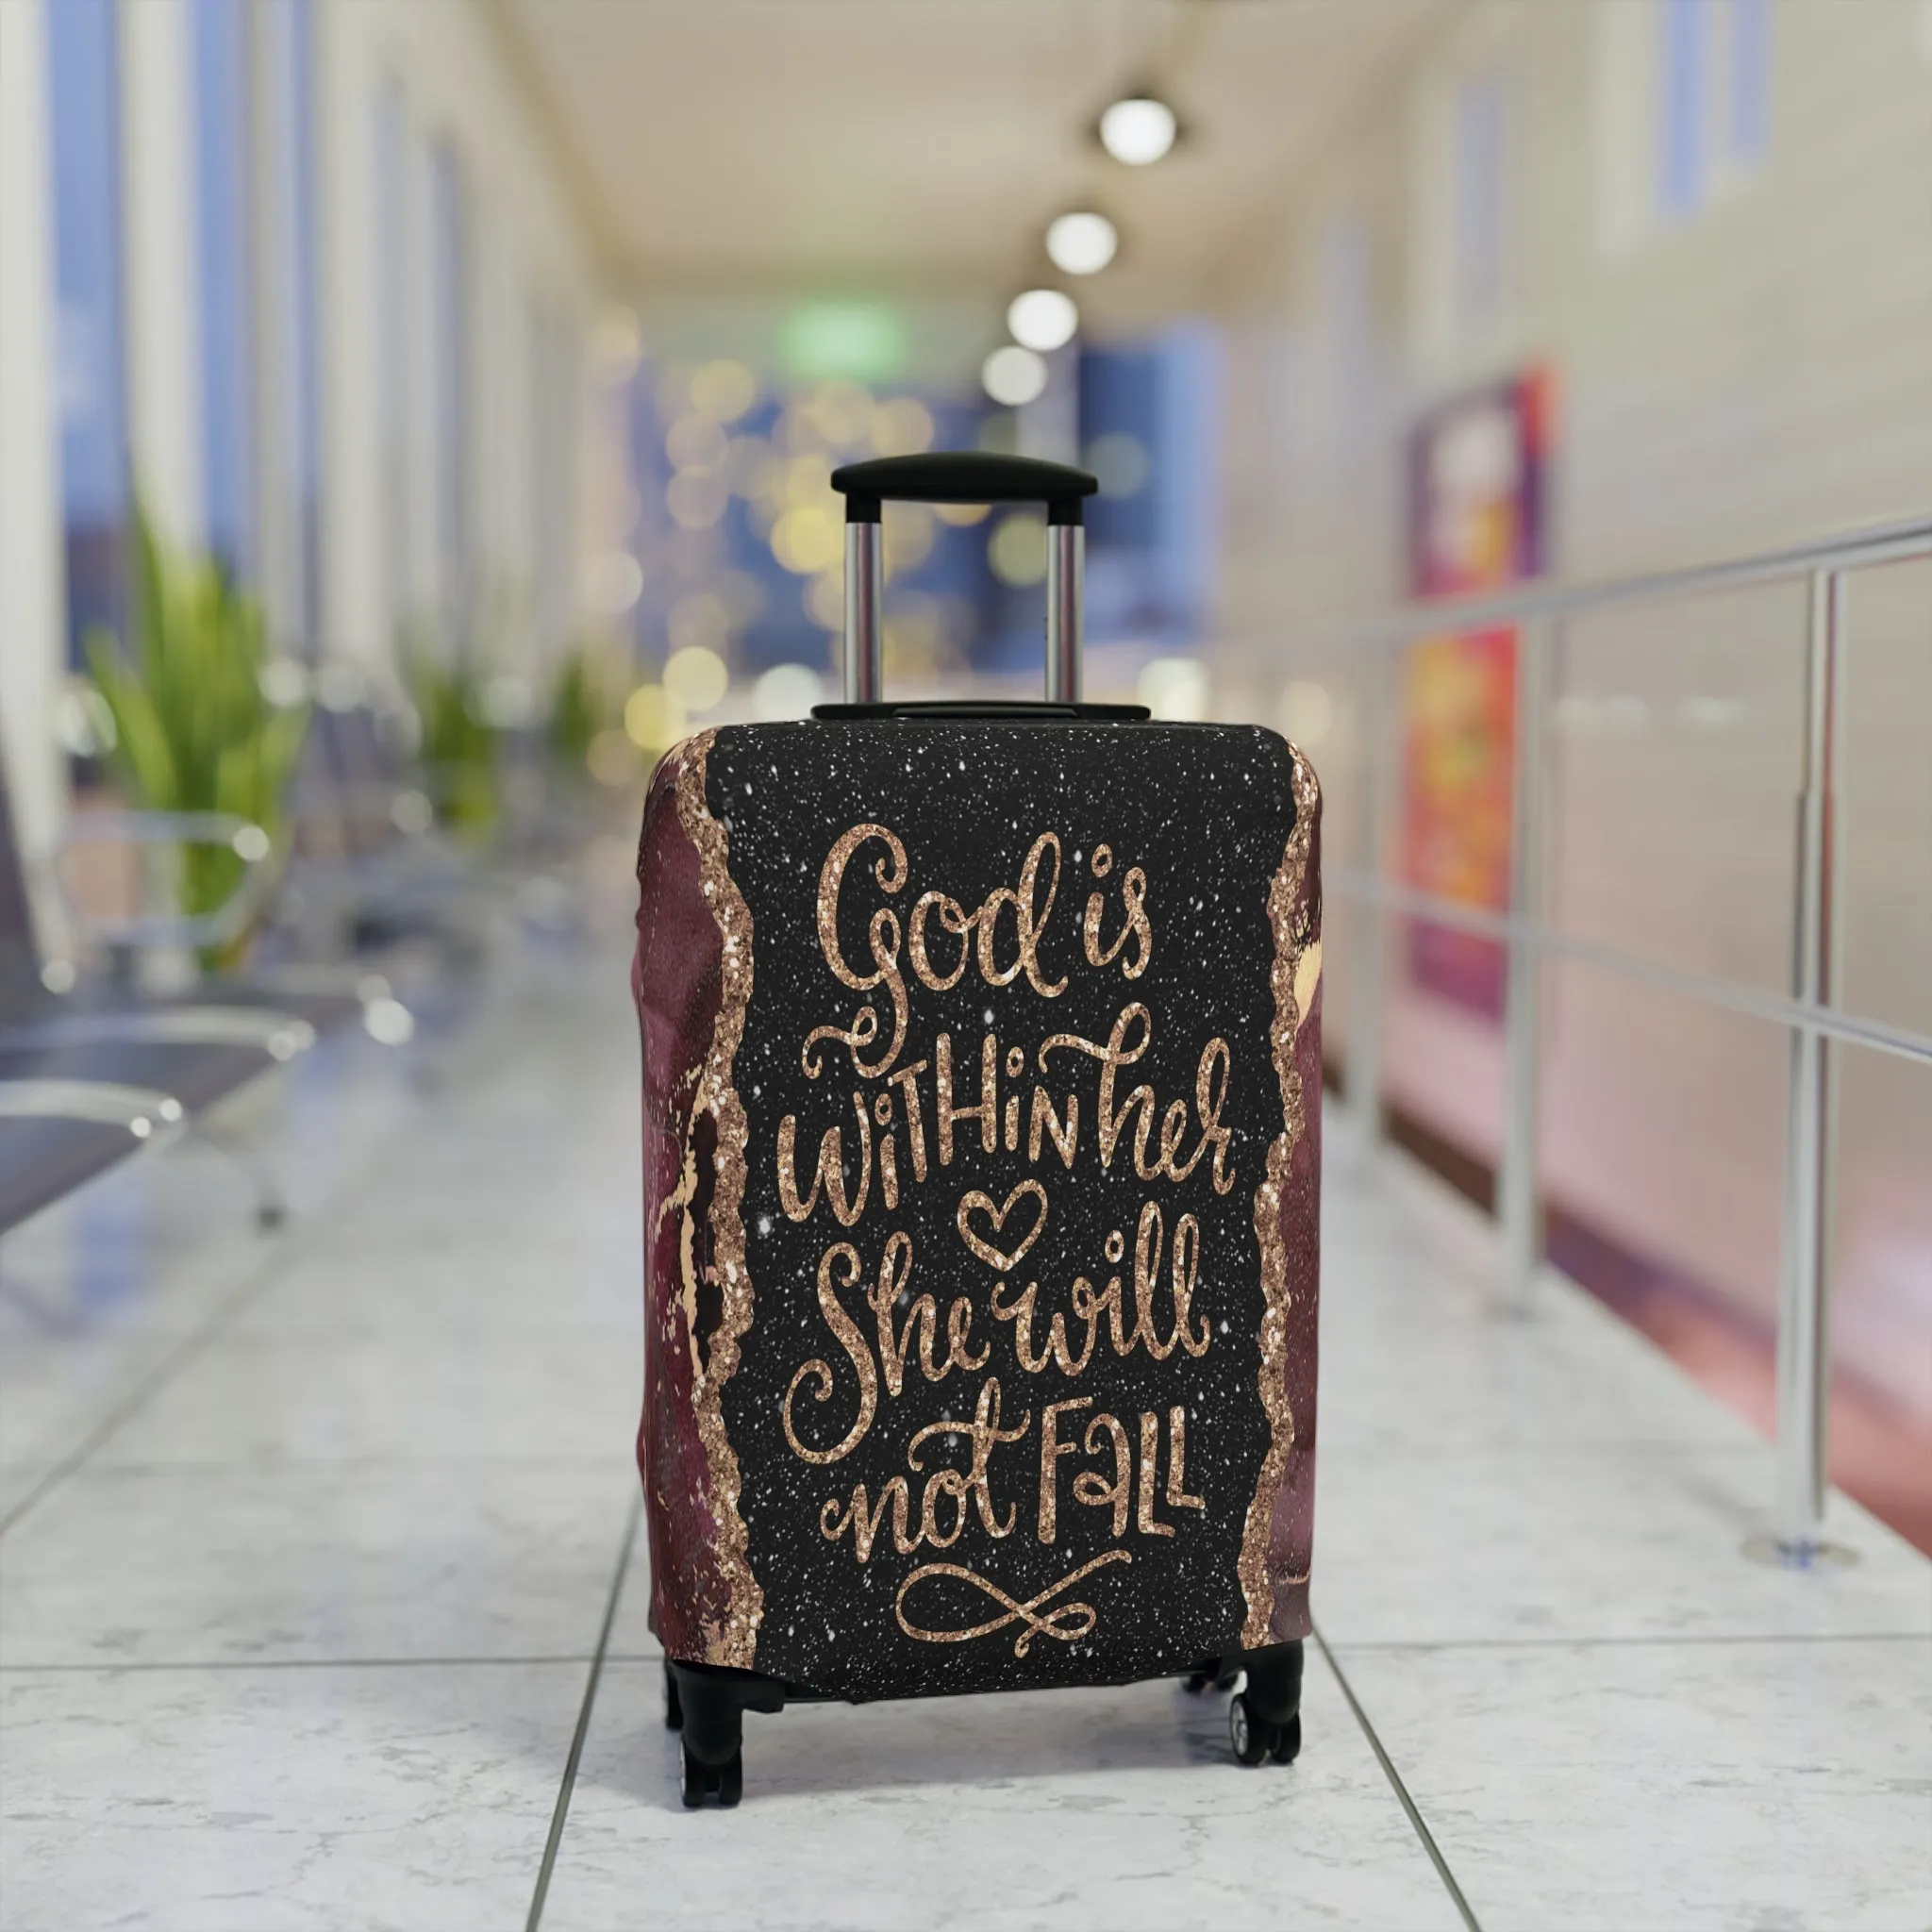 God is
WiTHiN her
She will
not FaLL